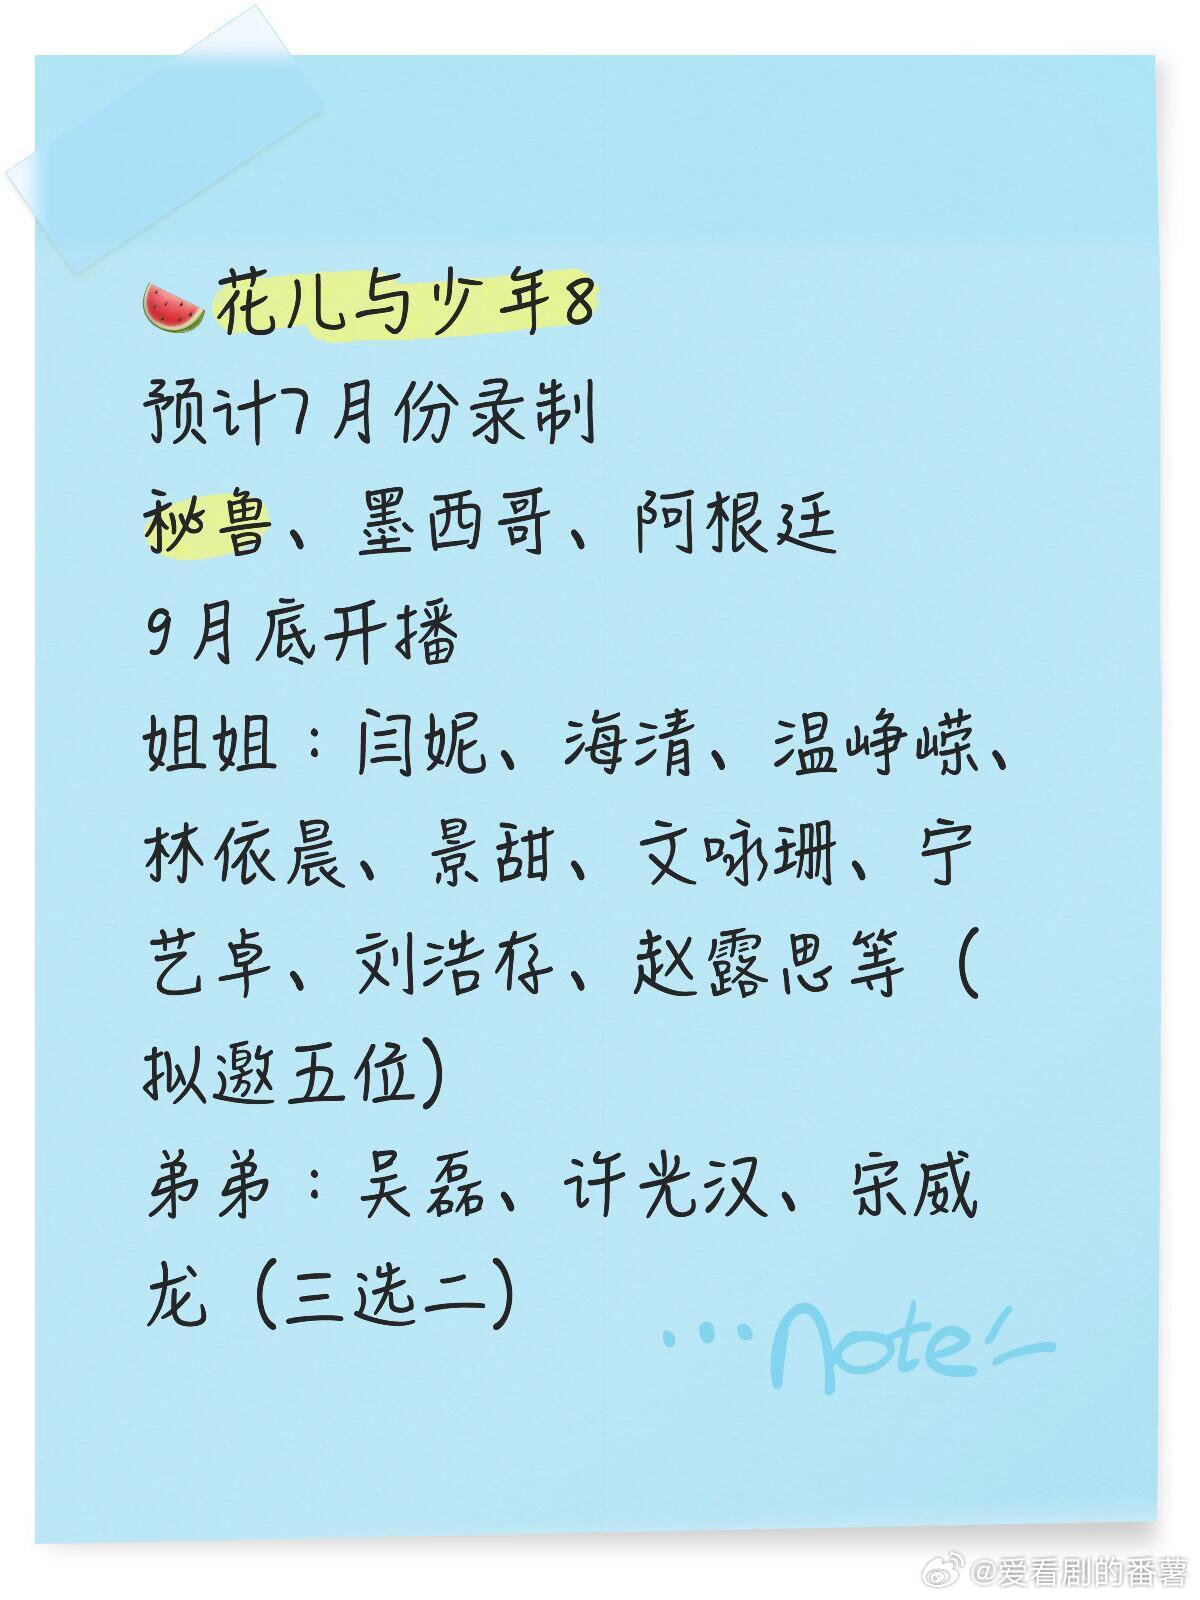 🍉花儿与少年8
预计7月份录制
秘鲁、墨西哥、阿根廷
9月底开播
姐姐：闫妮、海清、温峥嵘、
林依晨、景甜、文咏珊、宁
艺卓、刘浩存、赵露思等（
拟邀五位）
弟弟：吴磊、许光汉、宋威
龙（三选二）
...note
@爱看剧的番薯